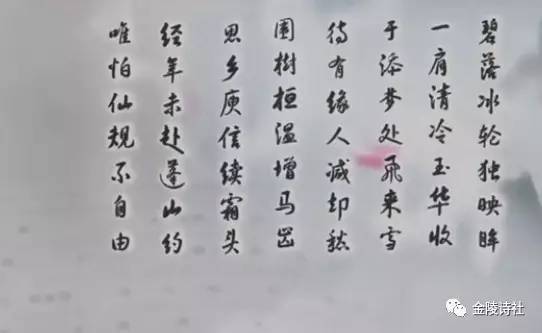 碧落冰轮独映眸
一肩清冷玉华收
于添梦处飛来雪
待有缘人减却愁
围樹桓温增马齿
思乡庾信续霜头
经年未赴蓬山约
唯怕仙规不自由
金陵诗社